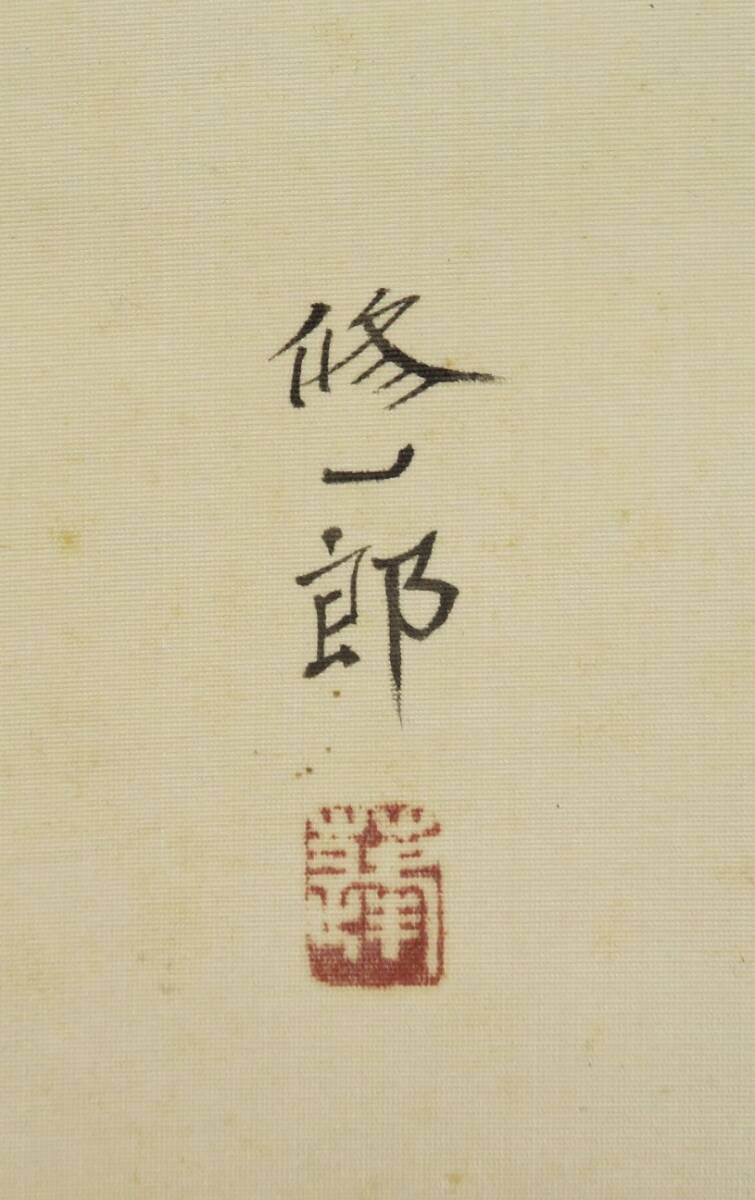 修一郎